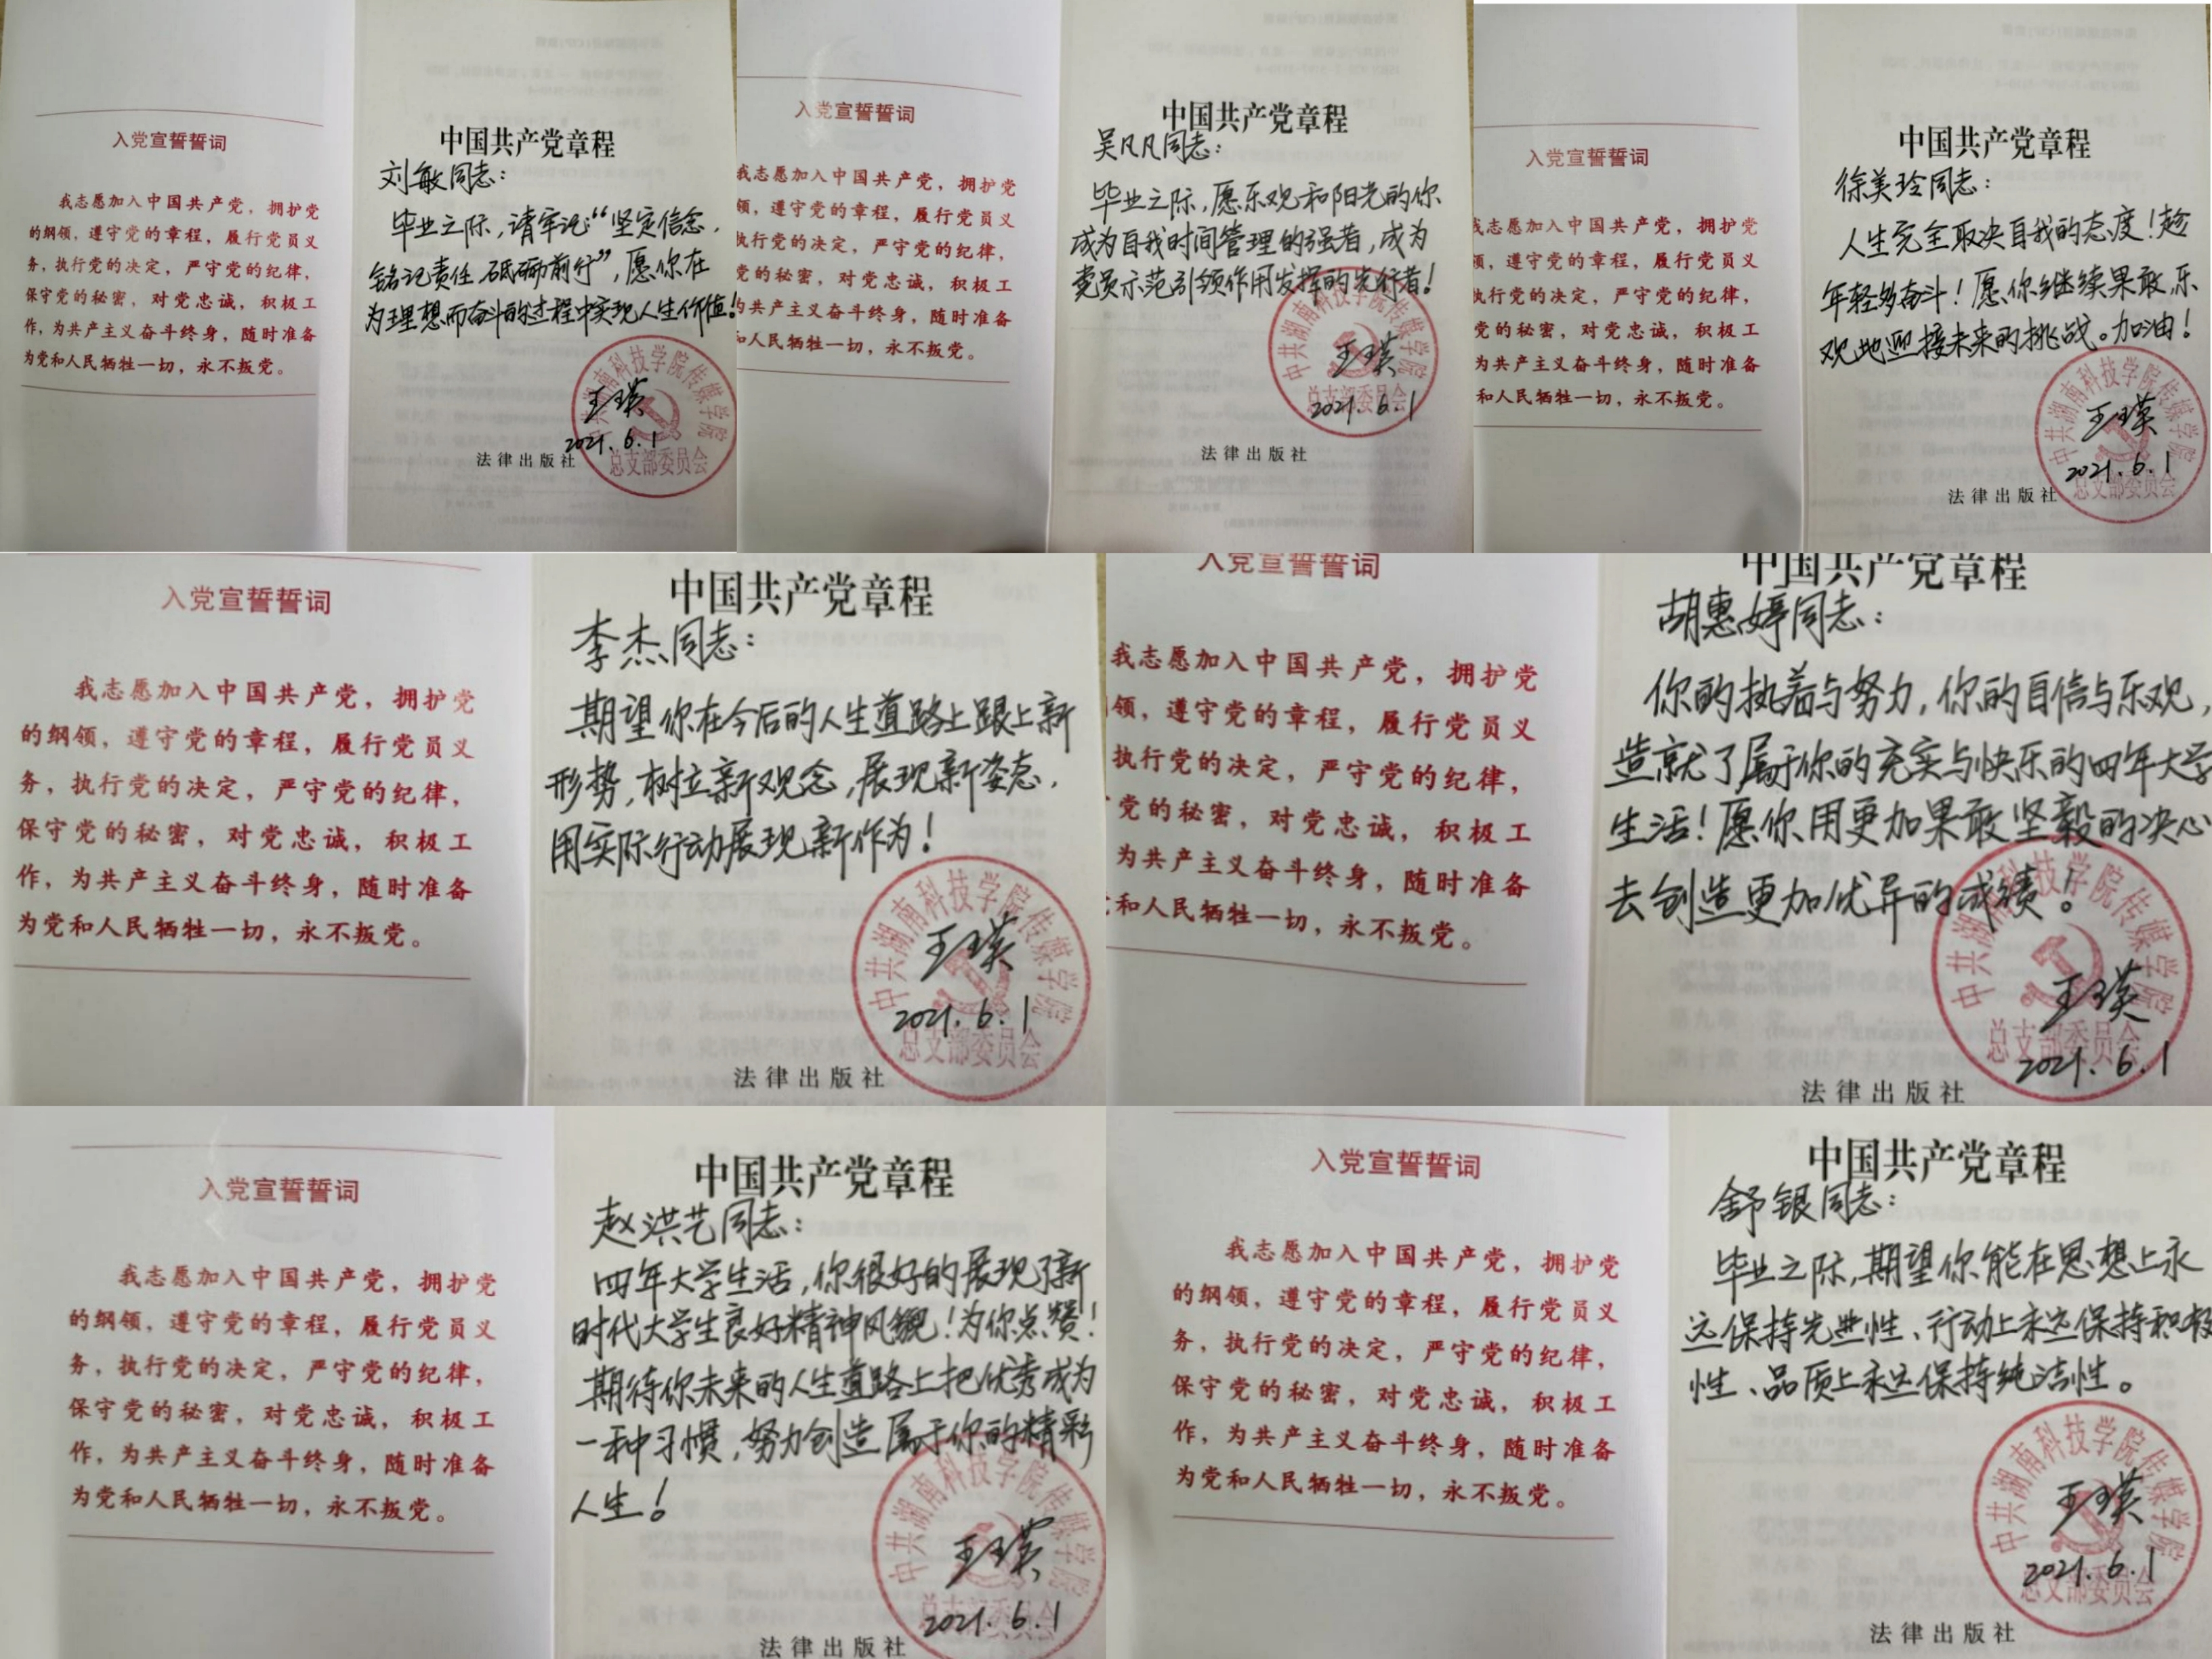 入党宣誓誓词
我志愿加入中国共产党，拥护党
的纲领，遵守党的章程，履行党员义
务，执行党的决定，严守党的纪律，
保守党的秘密，对党忠诚，积极工
作，为共产主义奋斗终身，随时准备
为党和人民牺牲一切，永不叛党。
中国共产党章程
刘敏同志：
毕业之际，请牢记“坚定信念，
铭记责任，砥砺前行”，愿你在
为理想而奋斗的过程中实现人生价值！
中共湖南科技学院传媒学院
王瑛
2021.6.1
总支部委员会
法律出版社
入党宣誓誓词
我志愿加入中国共产党，拥护党
领，遵守党的章程，履行党员义
执行党的决定，严守党的纪律，
党的秘密，对党忠诚，积极工
为共产主义奋斗终身，随时准备
和人民牺牲一切，永不叛党。
中国共产党章程
吴凡凡同志：
毕业之际，愿乐观和阳光的你
成为自我时间管理的强者，成为
党员示范引领作用发挥的先行者！
中共湖南科技学院传媒学院
王瑛
总支部委员会
2021.6.1
法律出版社
入党宣誓誓词
我志愿加入中国共产党，拥护党
领，遵守党的章程，履行党员义
执行党的决定，严守党的纪律，
党的秘密，对党忠诚，积极工
为共产主义奋斗终身，随时准备
和人民牺牲一切，永不叛党。
中国共产党章程
徐美玲同志：
人生完全取决自我的态度！趁
年轻多奋斗！愿你继续果敢、乐
观地迎接未来的挑战。加油！
中共湖南科技学院传媒学院
王瑛
2021.6.1
总支部委员会
法律出版社
入党宣誓誓词
我志愿加入中国共产党，拥护党
的纲领，遵守党的章程，履行党员义
务，执行党的决定，严守党的纪律，
保守党的秘密，对党忠诚，积极工
作，为共产主义奋斗终身，随时准备
为党和人民牺牲一切，永不叛党。
中国共产党章程
李杰同志：
期望你在今后的人生道路上跟上新
形势，树立新观念，展现新姿态，
用实际行动展现新作为！
中共湖南科技学院传媒学院
王瑛
2021.6.1
总支部委员会
法律出版社
入党宣誓誓词
我志愿加入中国共产党，拥护党
领，遵守党的章程，履行党员义
执行党的决定，严守党的纪律，
党的秘密，对党忠诚，积极工
为共产主义奋斗终身，随时准备
和人民牺牲一切，永不叛党。
中国共产党章程
胡惠婷同志：
你的执着与努力，你的自信与乐观，
造就了属于你的充实与快乐的四年大学
生活！愿你用更加果敢坚毅的决心
去创造更加优异的成绩！
中共湖南科技学院传媒学院
王瑛
总支部委员会
2021.6.1
法律出版社
入党宣誓誓词
我志愿加入中国共产党，拥护党
的纲领，遵守党的章程，履行党员义
务，执行党的决定，严守党的纪律，
保守党的秘密，对党忠诚，积极工
作，为共产主义奋斗终身，随时准备
为党和人民牺牲一切，永不叛党。
中国共产党章程
赵洪艺同志：
四年大学生活，你很好的展现了新
时代大学生良好精神风貌！为你点赞！
期待你未来的人生道路上把优秀成为
一种习惯，努力创造属于你的精彩
人生！
中共湖南科技学院传媒学院
王瑛
总支部委员会
2021.6.1
法律出版社
入党宣誓誓词
我志愿加入中国共产党，拥护党
的纲领，遵守党的章程，履行党员义
务，执行党的决定，严守党的纪律，
保守党的秘密，对党忠诚，积极工
作，为共产主义奋斗终身，随时准备
为党和人民牺牲一切，永不叛党。
中国共产党章程
舒银同志：
毕业之际，期望你能在思想上永
远保持先进性、行动上永远保持积极
性、品质上永远保持纯洁性。
中共湖南科技学院传媒学院
王瑛
2021.6.1
总支部委员会
法律出版社